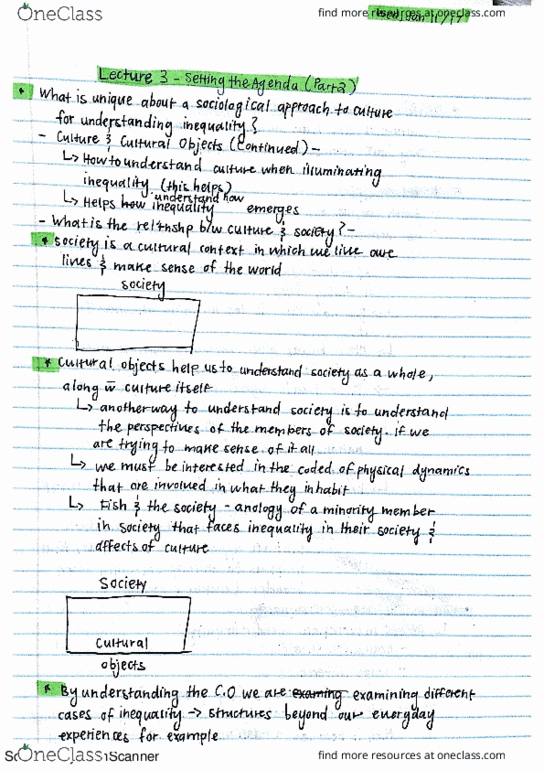 OneClass
find more resources at oneclass.com
Wed, Jan 11/17
Lecture 3 - Setting the Agenda (Part 2)
* What is unique about a sociological approach to culture
for understanding inequality?
- Culture & Cultural Objects (Continued) -
↳ How to understand culture when illuminating
inequality (this helps)
understand how
↳ Helps how inequality emerges
- What is the reltnshp b/w culture & society? -
* Society is a cultural context in which we live owe
lives & make sense of the world
society
* Cultural objects help us to understand society as a whole,
along w̄ culture itself
↳ another way to understand society is to understand
the perspectives of the members of society. if we
are trying to make sense of it all
↳ we must be interested in the coded of physical dynamics
that are involved in what they inhabit
↳ Fish & the society - anology of a minority member
in society that faces inequality in their society &
affects of culture
Society
Cultural
objects
* By understanding the C.O we are examing examining different
cases of inequality → structures beyond our everyday
experiences for example
OneClass
Scanner
find more resources at oneclass.com